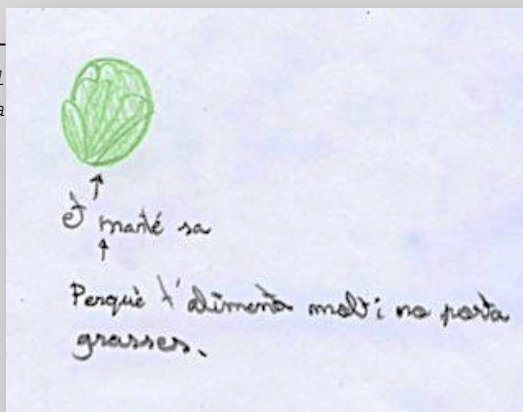 T'manté sa
Perquè t'alimenta molt i no porta
grasses.